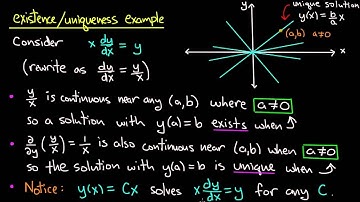 existence/uniqueness example
Consider x dy/dx = y
(rewrite as dy/dx = y/x)
y
x
unique solution
y(x) = b/a x
(a,b) a≠0
• y/x is continuous near any (a,b) where a≠0
so a solution with y(a)=b exists when ↑
• ∂/∂y (y/x) = 1/x is also continuous near (a,b) when a≠0
so the solution with y(a)=b is unique when ↑
• Notice: y(x) = Cx solves x dy/dx = y for any C.